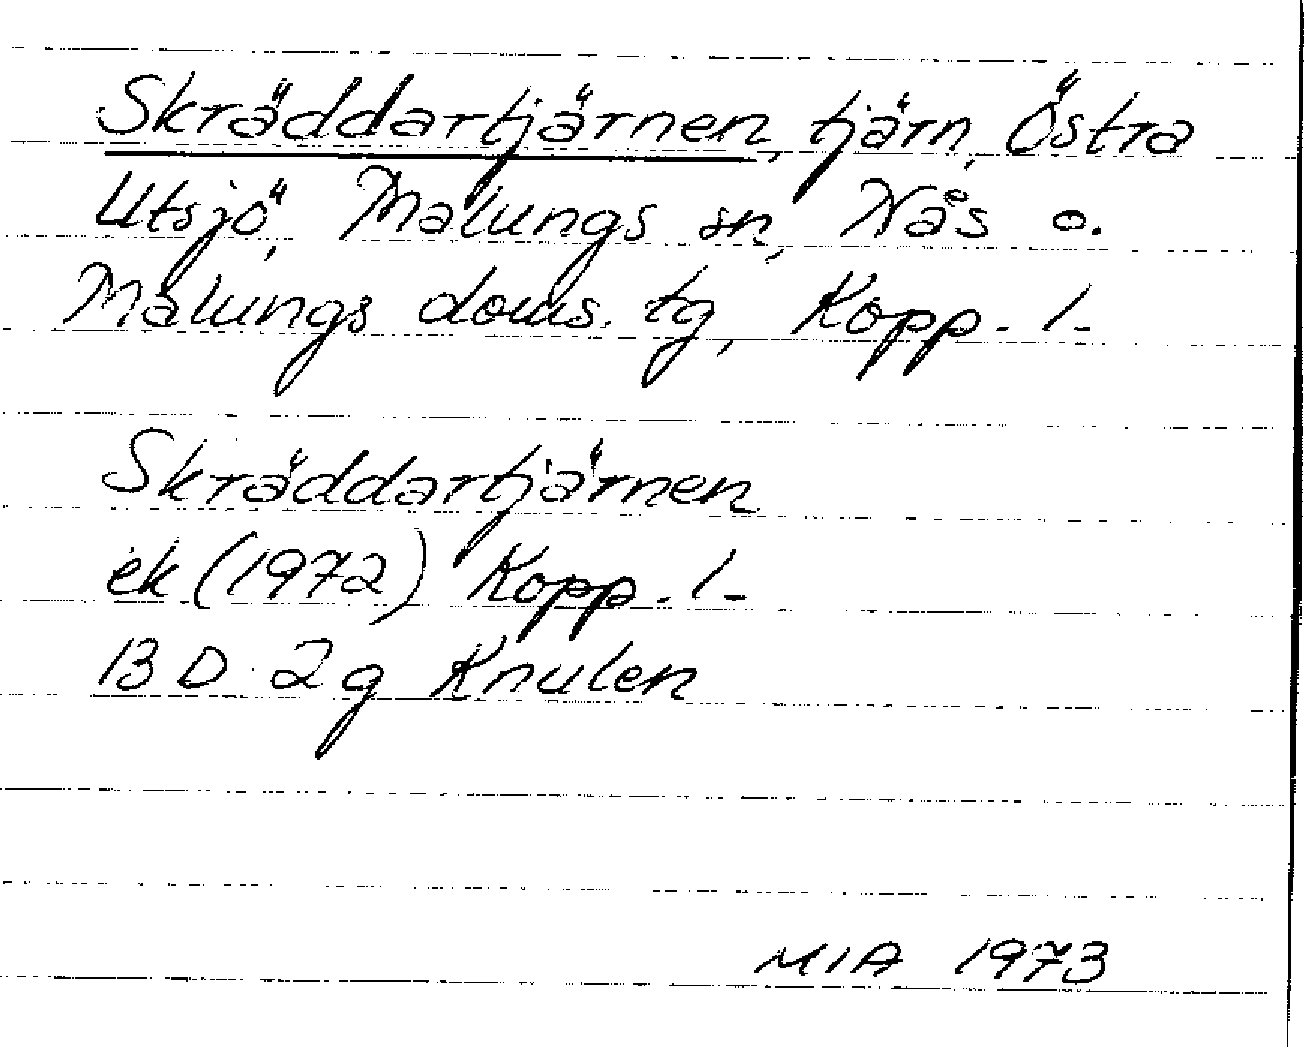 Skräddartjärnen, tjärn, Östra
Utsjö, Malungs sn, Nås o.
Malungs doms. tg, Kopp. l.
Skräddartjärnen
ek (1972) Kopp. l.
13 D 2g Knulen
MIA 1973